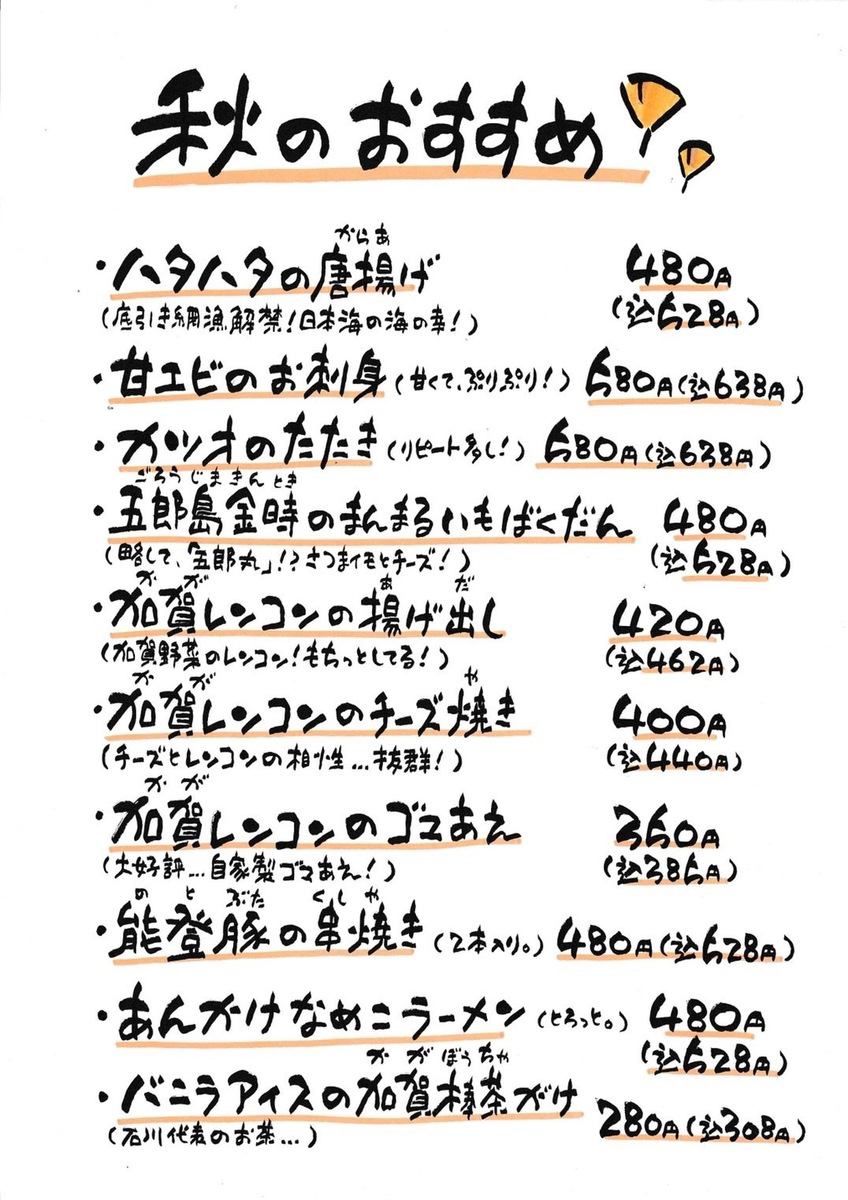 秋のおすすめ
からあ
・ハタハタの唐揚げ 480円
(底引き網漁解禁!日本海の海の幸!) (込528円)
・甘エビのお刺身(甘くて、ぷりぷり!) 580円(込638円)
・カツオのたたき(リピート多し!) 580円(込638円)
ごろうじまきんとき
・五郎島金時のまんまるいもばくだん 480円
(略して、「五郎丸」!?さつまイモとチーズ!) (込528円)
かが あ だ
・加賀レンコンの揚げ出し 420円
(加賀野菜のレンコン!もちっとしてる!) (込462円)
かが や
・加賀レンコンのチーズ焼き 400円
(チーズとレンコンの相性…抜群!) (込440円)
かが
・加賀レンコンのゴマあえ 350円
(大好評…自家製ゴマあえ!) (込385円)
のと ぶた くしや
・能登豚の串焼き(2本入り。) 480円(込528円)
・あんかけなめこラーメン(とろっと。) 480円
(込528円)
かがぼうちゃ
・バニラアイスの加賀棒茶がけ
(石川代表のお茶…) 280円(込308円)